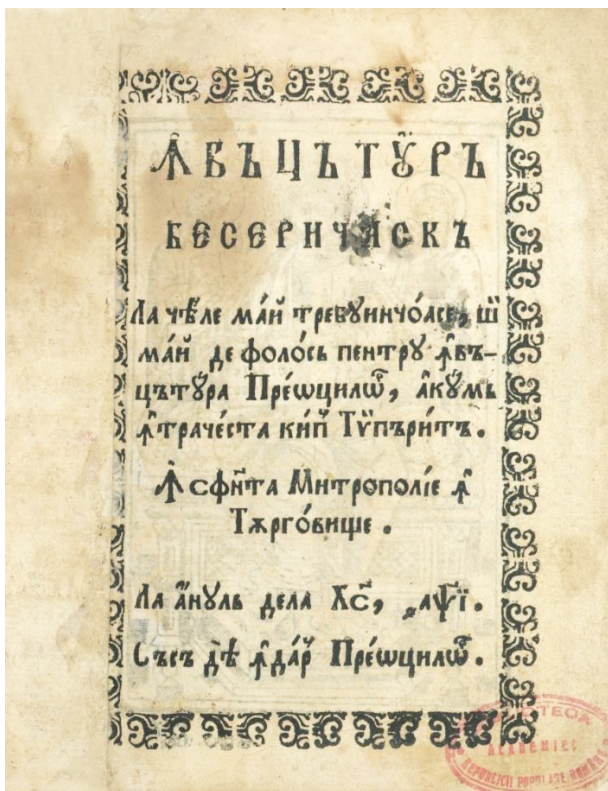 Ꙟвъцътꙋръ
бесеричѧскъ
Ла чѣле ма́й требꙋинчо́асе, ши
ма́й де фоло́сь пентрꙋ ꙟвъ-
цътꙋ́ра Прео́ѡцилѡр, акꙋ́мь
ꙟтраче́ста кип Тѷпъри́тъ.
Ꙟ сфн҃та Митрополі́е ꙟ
Тѫрго́вище.
Ла а́нꙋль дела Хс҃, ҂аѱї.
Съсъ дѣ ꙟда́р Прео́ѡцилѡр.
BIBLIOTECA
ACADEMIEI
REPUBLICII POPULARE ROMÂNE